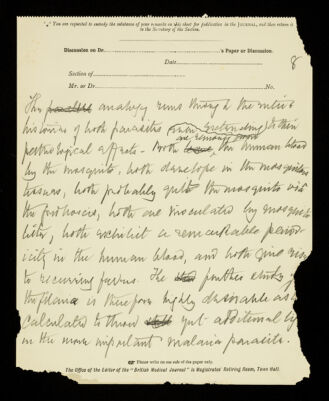 You are requested to embody the substance of your remarks on this sheet for publication in the JOURNAL, and then return it
to the Secretary of the Section.
Discussion on Dr. 's Paper or Discussion.
Date
8
Section of
Mr. or Dr. No.
The parallel analogy runs through the entire
histories of both parasites even extending to their
pathological effects. Both are removed from the human blood
by the mosquito, both develope in the mosquitos
tissues, both probably quit the mosquito via
the proboscis, both are inoculated by mosquito
bite, both exhibit a remarkable period-
icity in the human blood, and both give rise
to recurring fevers. The further study of
the filaria is therefore highly desirable as
calculated to throw light additional
on the more important malaria parasite.
Please write on one side of the paper only.
The Office of the Editor of the "British Medical Journal" is Magistrates' Retiring Room, Town Hall.